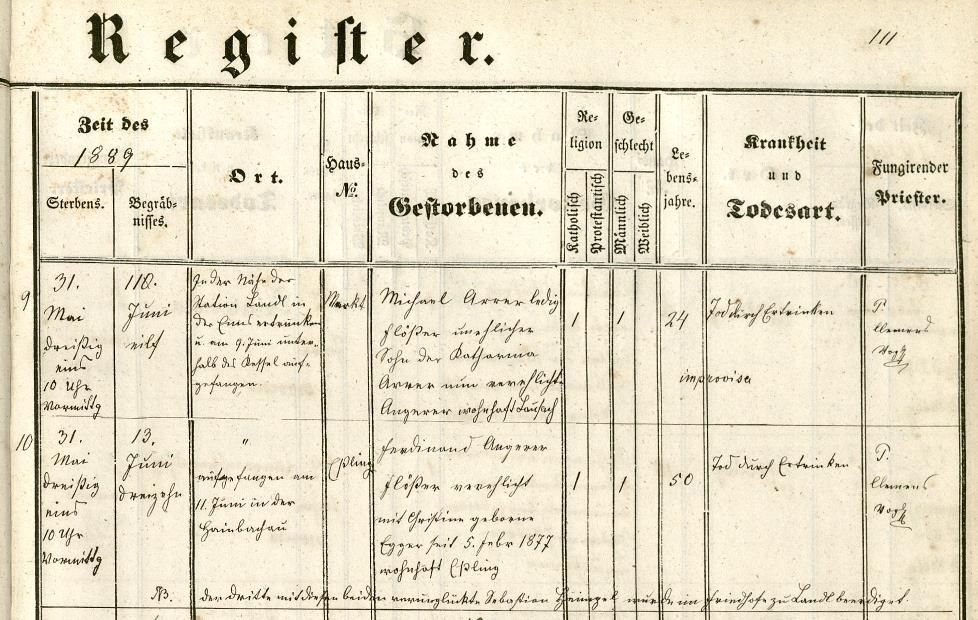 Register.
111
Zeit des
1889
Sterbens.
Begräb-
nisses.
Ort.
Haus-
No.
Nahme
des
Gestorbenen.
Re-
ligion
Katholisch
Protestantisch
Ge-
schlecht
Männlich
Weiblich
Le-
bens-
jahre.
Krankheit
und
Todesart.
Fungirender
Priester.
9
31.
Mai
dreißig
eins
10 Uhr
Vormittg
11.
Juni
eilf
In der Nähe der
Station Landl in
der Enns ertrunken
u. am 9. Juni unter-
halb des Kessel auf-
gefangen.
Markt
Michael Arrer ledig
Flößer unehlicher
Sohn der Katharina
Arrer nun verehlichte
Angerer wohnhaft
1
1
24
Tod durch Ertrinken
improvisa
P.
Clemens
10
31.
Mai
dreißig
eins
10 Uhr
Vormittg
13.
Juni
dreizehn
"
aufgefangen am
11. Juni in der
Hainbachau
Eßling
Ferdinand Angerer
Flößer verehlicht
mit Christine geborne
Egger seit 5. Febr 1877
wohnhaft Eßling
1
1
50
Tod durch Ertrinken
P.
Clemens
NB. der dritte mit diesen beiden verunglückte Sebastian wurde im Friedhofe zu Landl beerdiget.